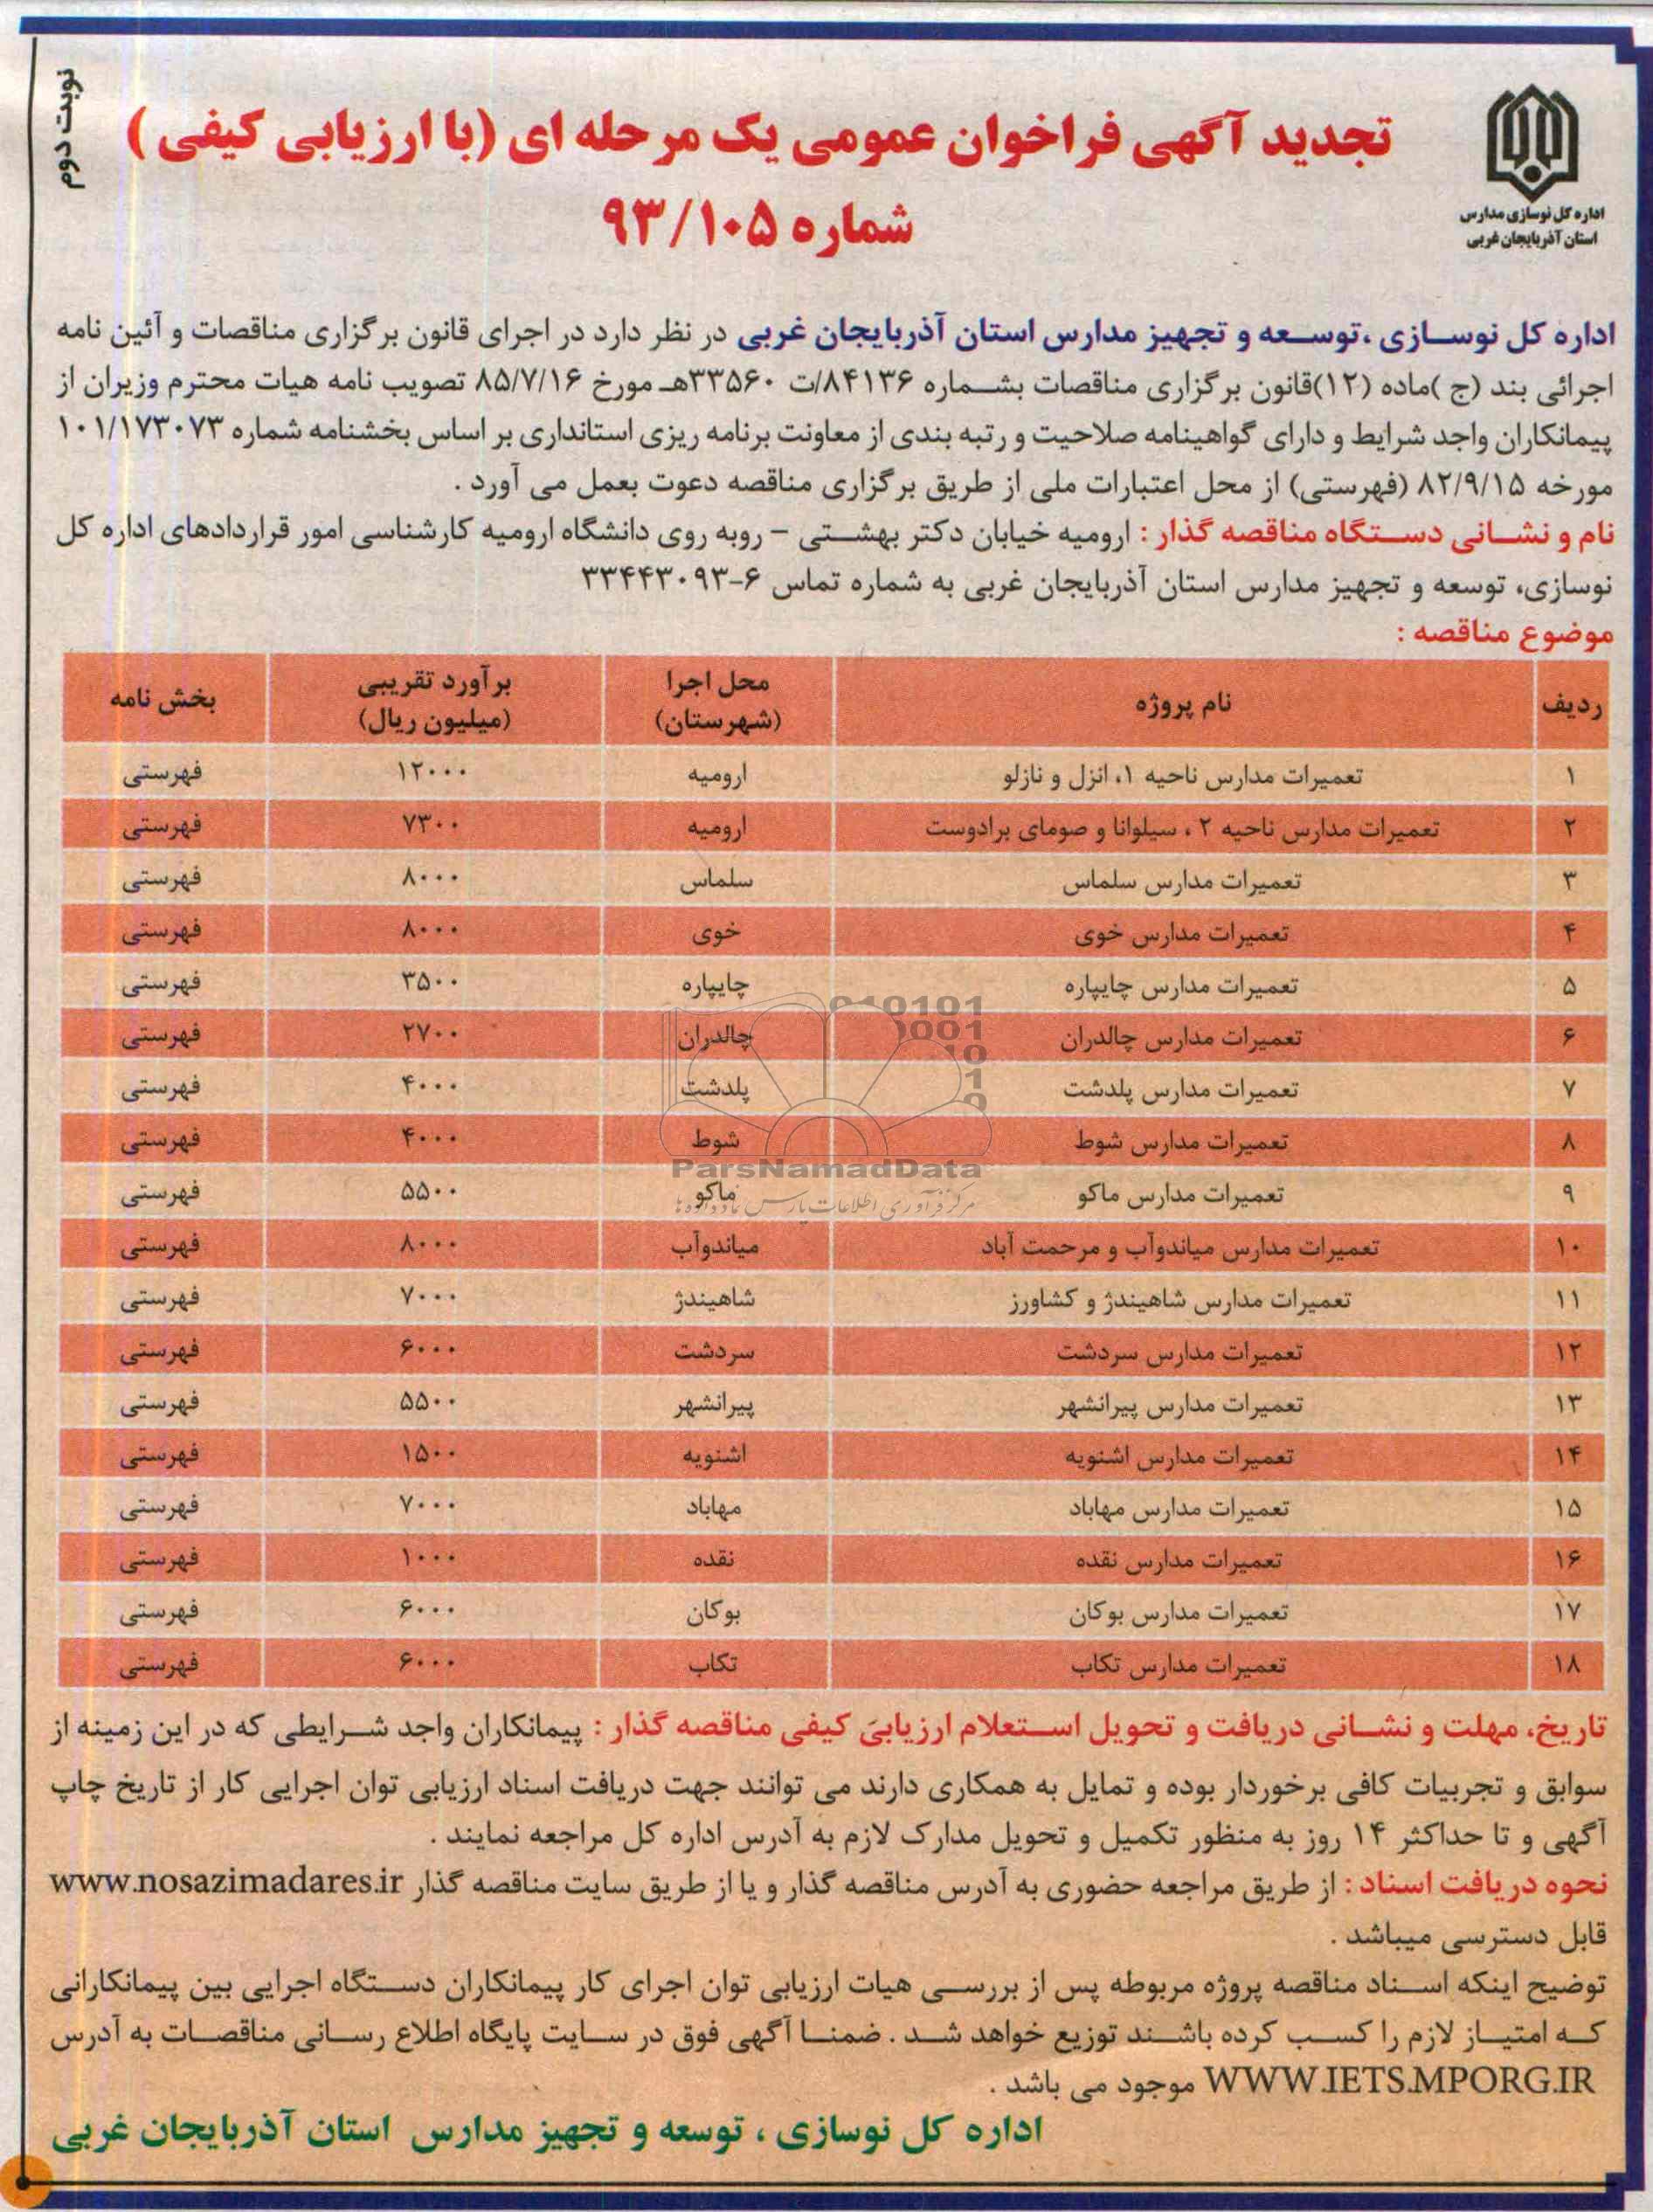 نوبت دوم
تجدید آگهی فراخوان عمومی یک مرحله ای (با ارزیابی کیفی )
شماره ۹۳/۱۰۵
اداره کل نوسازی مدارس
استان آذربایجان غربی
اداره کل نوسازی ،توسعه و تجهیز مدارس استان آذربایجان غربی در نظر دارد در اجرای قانون برگزاری مناقصات و آئین نامه
اجرائی بند (ج )ماده (۱۲)قانون برگزاری مناقصات بشماره ۸۴۱۳۶/ت ۳۳۵۶۰هـ مورخ ۸۵/۷/۱۶ تصویب نامه هیات محترم وزیران از
پیمانکاران واجد شرایط و دارای گواهینامه صلاحیت و رتبه بندی از معاونت برنامه ریزی استانداری بر اساس بخشنامه شماره ۱۰۱/۱۷۳۰۷۳
مورخه ۸۲/۹/۱۵ (فهرستی) از محل اعتبارات ملی از طریق برگزاری مناقصه دعوت بعمل می آورد .
نام و نشانی دستگاه مناقصه گذار : ارومیه خیابان دکتر بهشتی – روبه روی دانشگاه ارومیه کارشناسی امور قراردادهای اداره کل
نوسازی، توسعه و تجهیز مدارس استان آذربایجان غربی به شماره تماس ۶-۳۳۴۴۳۰۹۳
موضوع مناقصه :
ردیف نام پروژه محل اجرا (شهرستان) برآورد تقریبی (میلیون ریال) بخش نامه
۱ تعمیرات مدارس ناحیه ۱، انزل و نازلو ارومیه ۱۲۰۰۰ فهرستی
۲ تعمیرات مدارس ناحیه ۲ ، سیلوانا و صومای برادوست ارومیه ۷۳۰۰ فهرستی
۳ تعمیرات مدارس سلماس سلماس ۸۰۰۰ فهرستی
۴ تعمیرات مدارس خوی خوی ۸۰۰۰ فهرستی
۵ تعمیرات مدارس چایپاره چایپاره ۳۵۰۰ فهرستی
۶ تعمیرات مدارس چالدران چالدران ۲۷۰۰ فهرستی
۷ تعمیرات مدارس پلدشت پلدشت ۴۰۰۰ فهرستی
۸ تعمیرات مدارس شوط شوط ۴۰۰۰ فهرستی
۹ تعمیرات مدارس ماکو ماکو ۵۵۰۰ فهرستی
۱۰ تعمیرات مدارس میاندوآب و مرحمت آباد میاندوآب ۸۰۰۰ فهرستی
۱۱ تعمیرات مدارس شاهیندژ و کشاورز شاهیندژ ۷۰۰۰ فهرستی
۱۲ تعمیرات مدارس سردشت سردشت ۶۰۰۰ فهرستی
۱۳ تعمیرات مدارس پیرانشهر پیرانشهر ۵۵۰۰ فهرستی
۱۴ تعمیرات مدارس اشنویه اشنویه ۱۵۰۰ فهرستی
۱۵ تعمیرات مدارس مهاباد مهاباد ۷۰۰۰ فهرستی
۱۶ تعمیرات مدارس نقده نقده ۱۰۰۰ فهرستی
۱۷ تعمیرات مدارس بوکان بوکان ۶۰۰۰ فهرستی
۱۸ تعمیرات مدارس تکاب تکاب ۶۰۰۰ فهرستی
ParsNamadData
تاریخ، مهلت و نشانی دریافت و تحویل استعلام ارزیابی کیفی مناقصه گذار : پیمانکاران واجد شرایطی که در این زمینه از
سوابق و تجربیات کافی برخوردار بوده و تمایل به همکاری دارند می توانند جهت دریافت اسناد ارزیابی توان اجرایی کار از تاریخ چاپ
آگهی و تا حداکثر ۱۴ روز به منظور تکمیل و تحویل مدارک لازم به آدرس اداره کل مراجعه نمایند .
نحوه دریافت اسناد : از طریق مراجعه حضوری به آدرس مناقصه گذار و یا از طریق سایت مناقصه گذار www.nosazimadares.ir
قابل دسترسی میباشد .
توضیح اینکه اسناد مناقصه پروژه مربوطه پس از بررسی هیات ارزیابی توان اجرای کار پیمانکاران دستگاه اجرایی بین پیمانکارانی
که امتیاز لازم را کسب کرده باشند توزیع خواهد شد . ضمنا آگهی فوق در سایت پایگاه اطلاع رسانی مناقصات به آدرس
WWW.IETS.MPORG.IR موجود می باشد .
اداره کل نوسازی ، توسعه و تجهیز مدارس استان آذربایجان غربی